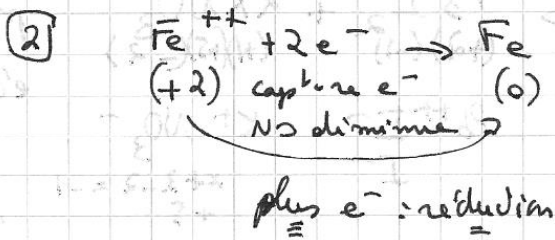 2 Fe++ + 2e- → Fe
(+2) capture e- (0)
NO diminue
plus e- : réduction